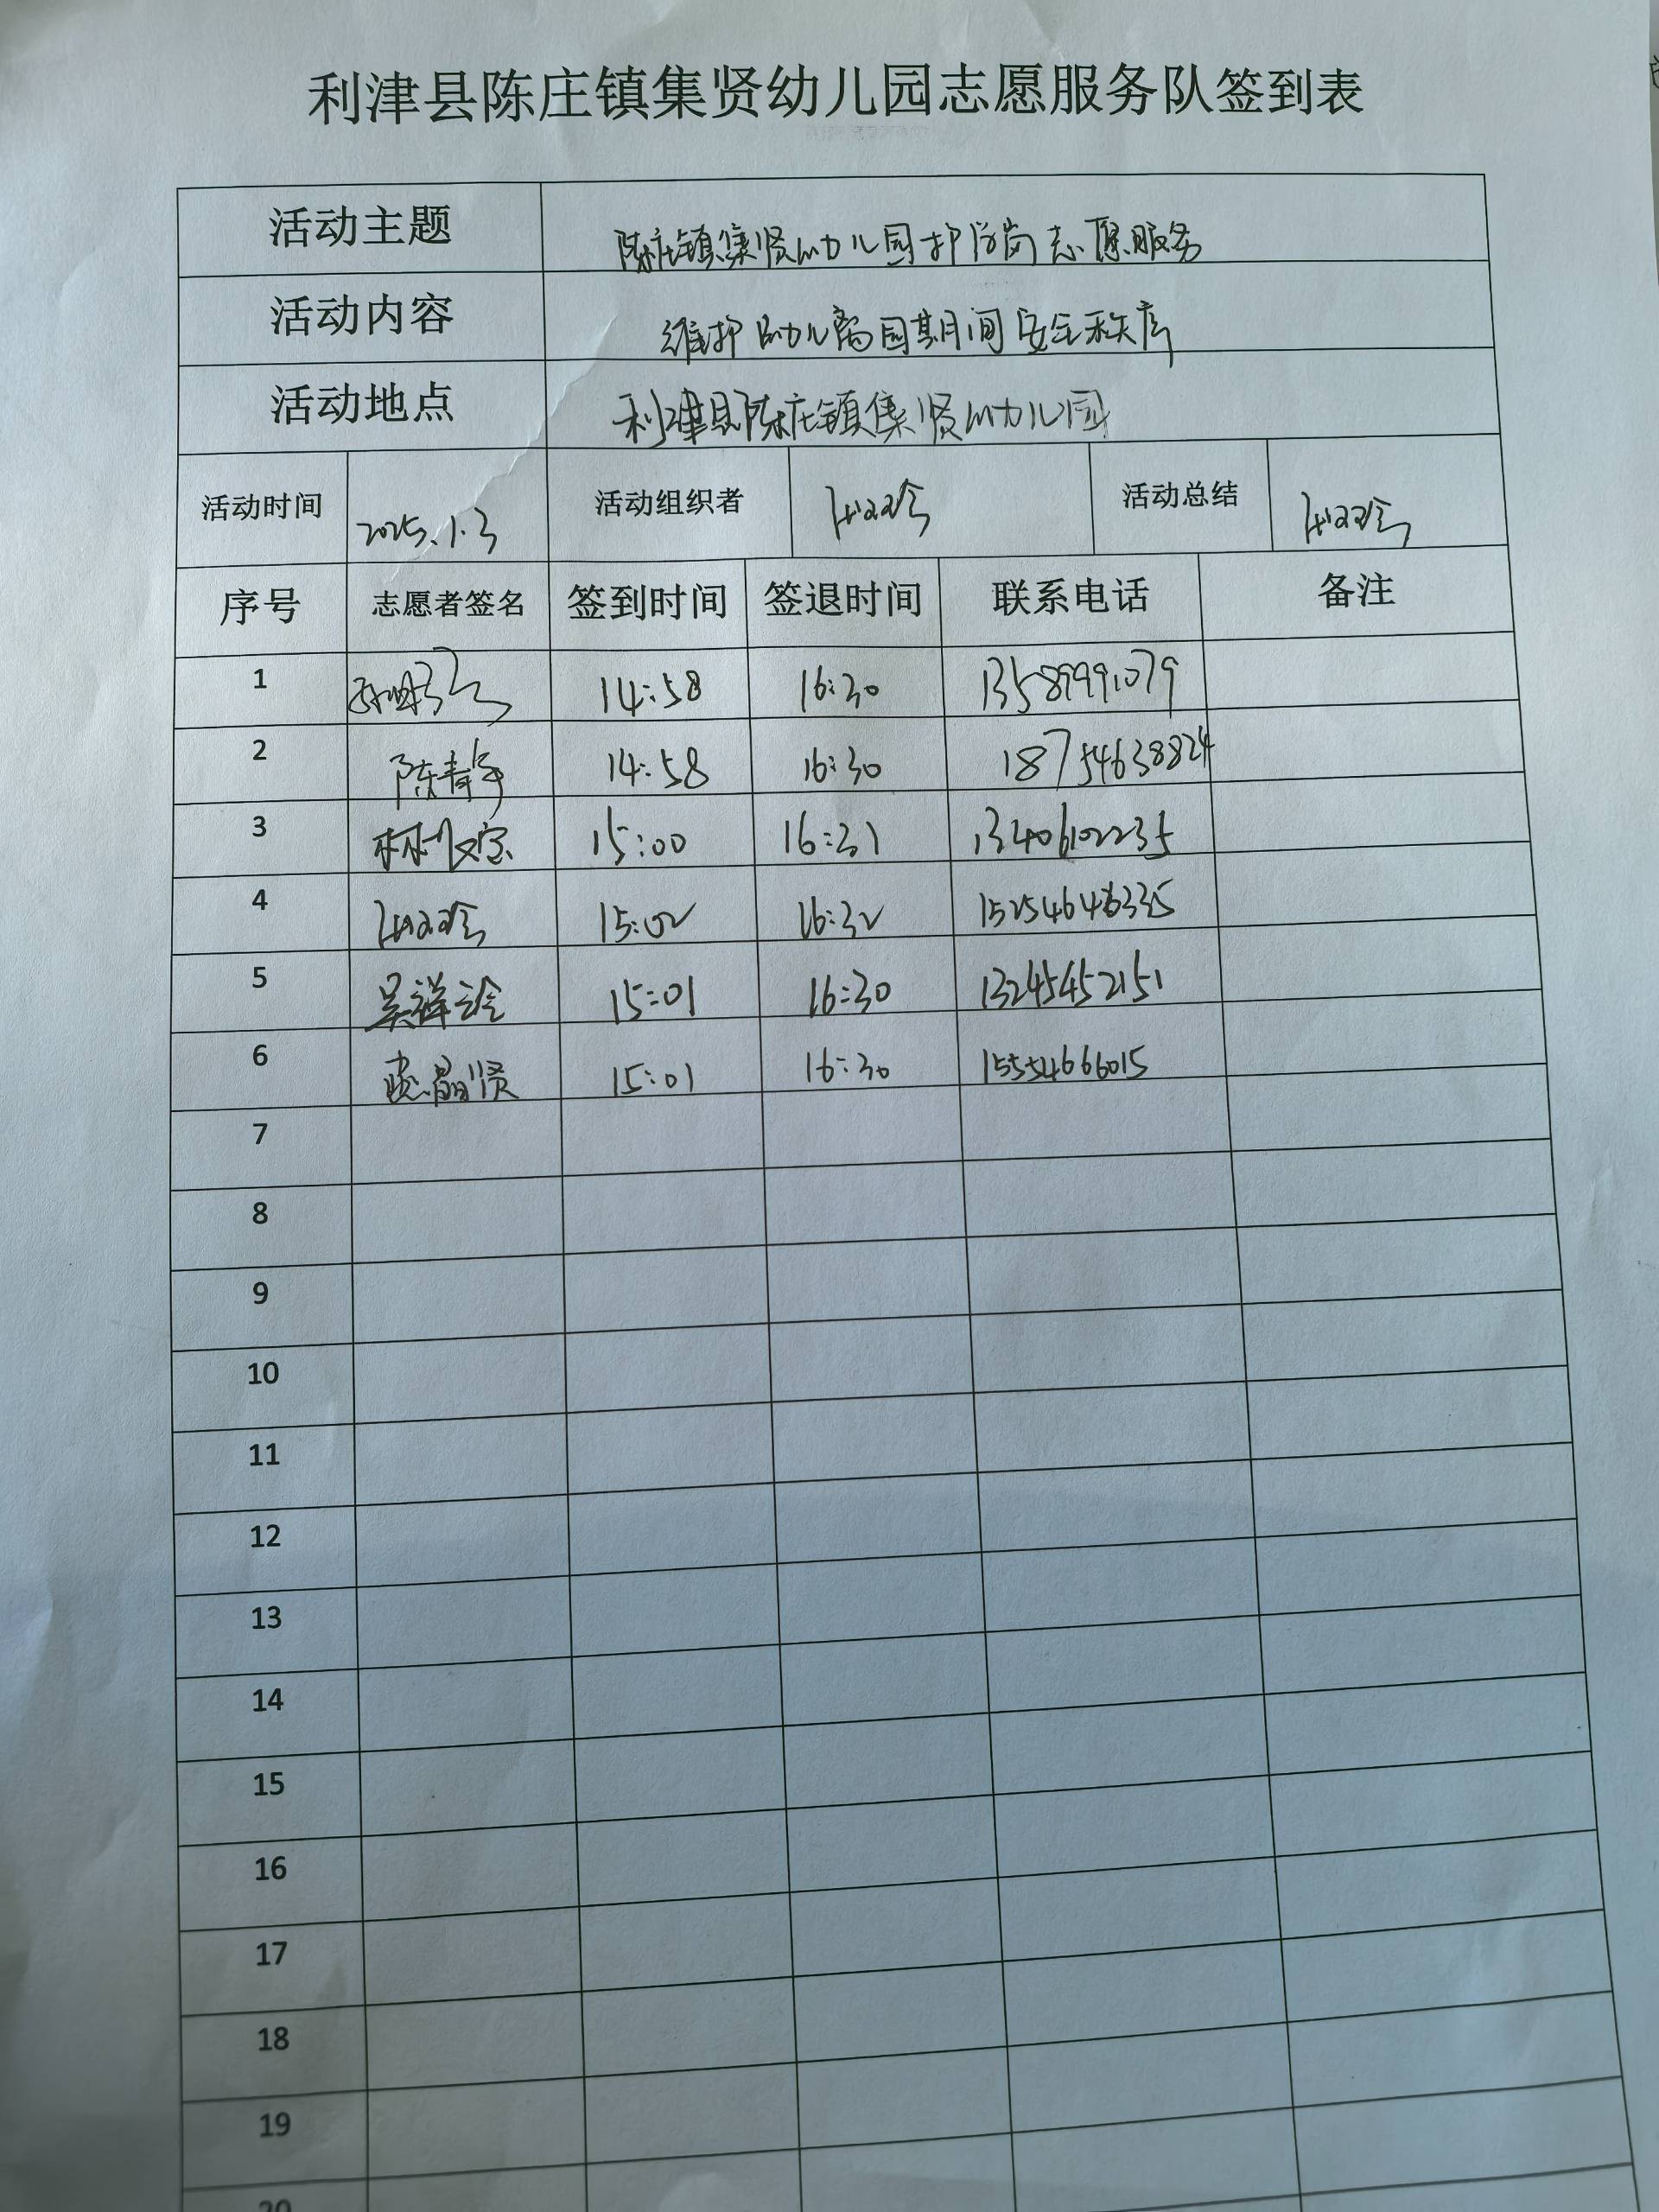 利津县陈庄镇集贤幼儿园志愿服务队签到表
活动主题 陈庄镇集贤幼儿园护学岗志愿服务
活动内容 维护幼儿离园期间安全秩序
活动地点 利津县陈庄镇集贤幼儿园
活动时间 2025.1.3 活动组织者 活动总结
序号 志愿者签名 签到时间 签退时间 联系电话 备注
1 14:58 16:30 13589991079
2 陈青 14:58 16:30 18754638824
3 15:00 16:31 13406102235
4 15:02 16:32
5 吴祥 15:01 16:30 13245452151
6 晶贤 15:01 16:30 15554666015
7
8
9
10
11
12
13
14
15
16
17
18
19
20